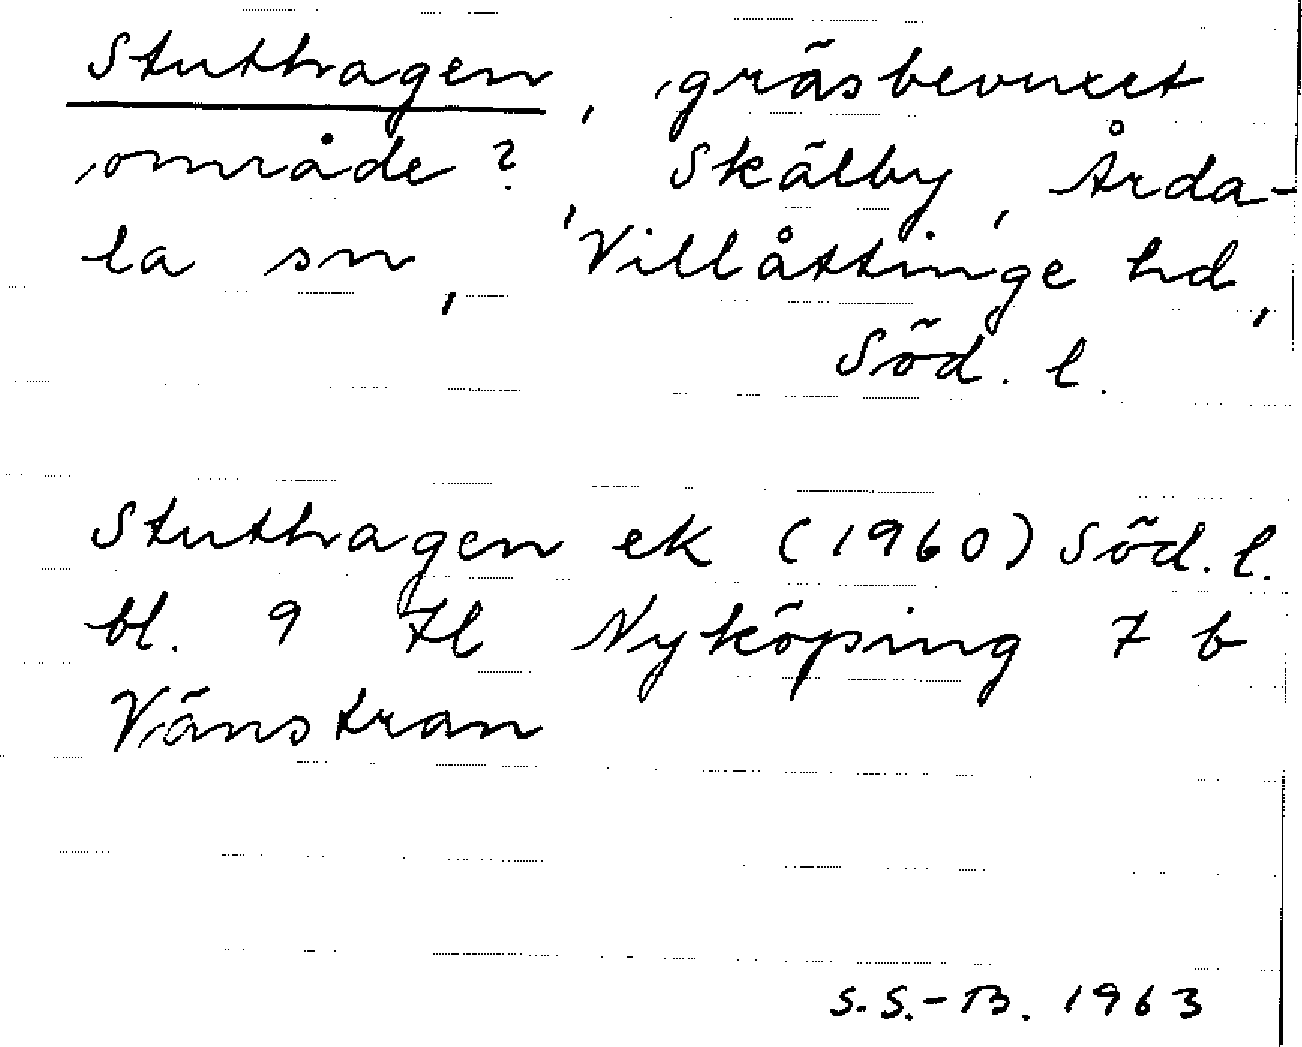 Stuthagen, gräsbevuxet
område? Skälby, Årda-
la sn, Villåttinge hd,
Söd. l.
Stuthagen ek (1960) Söd. l.
bl. 9 7l Nyköping 7 b
Vänstran
S.S.-B. 1963